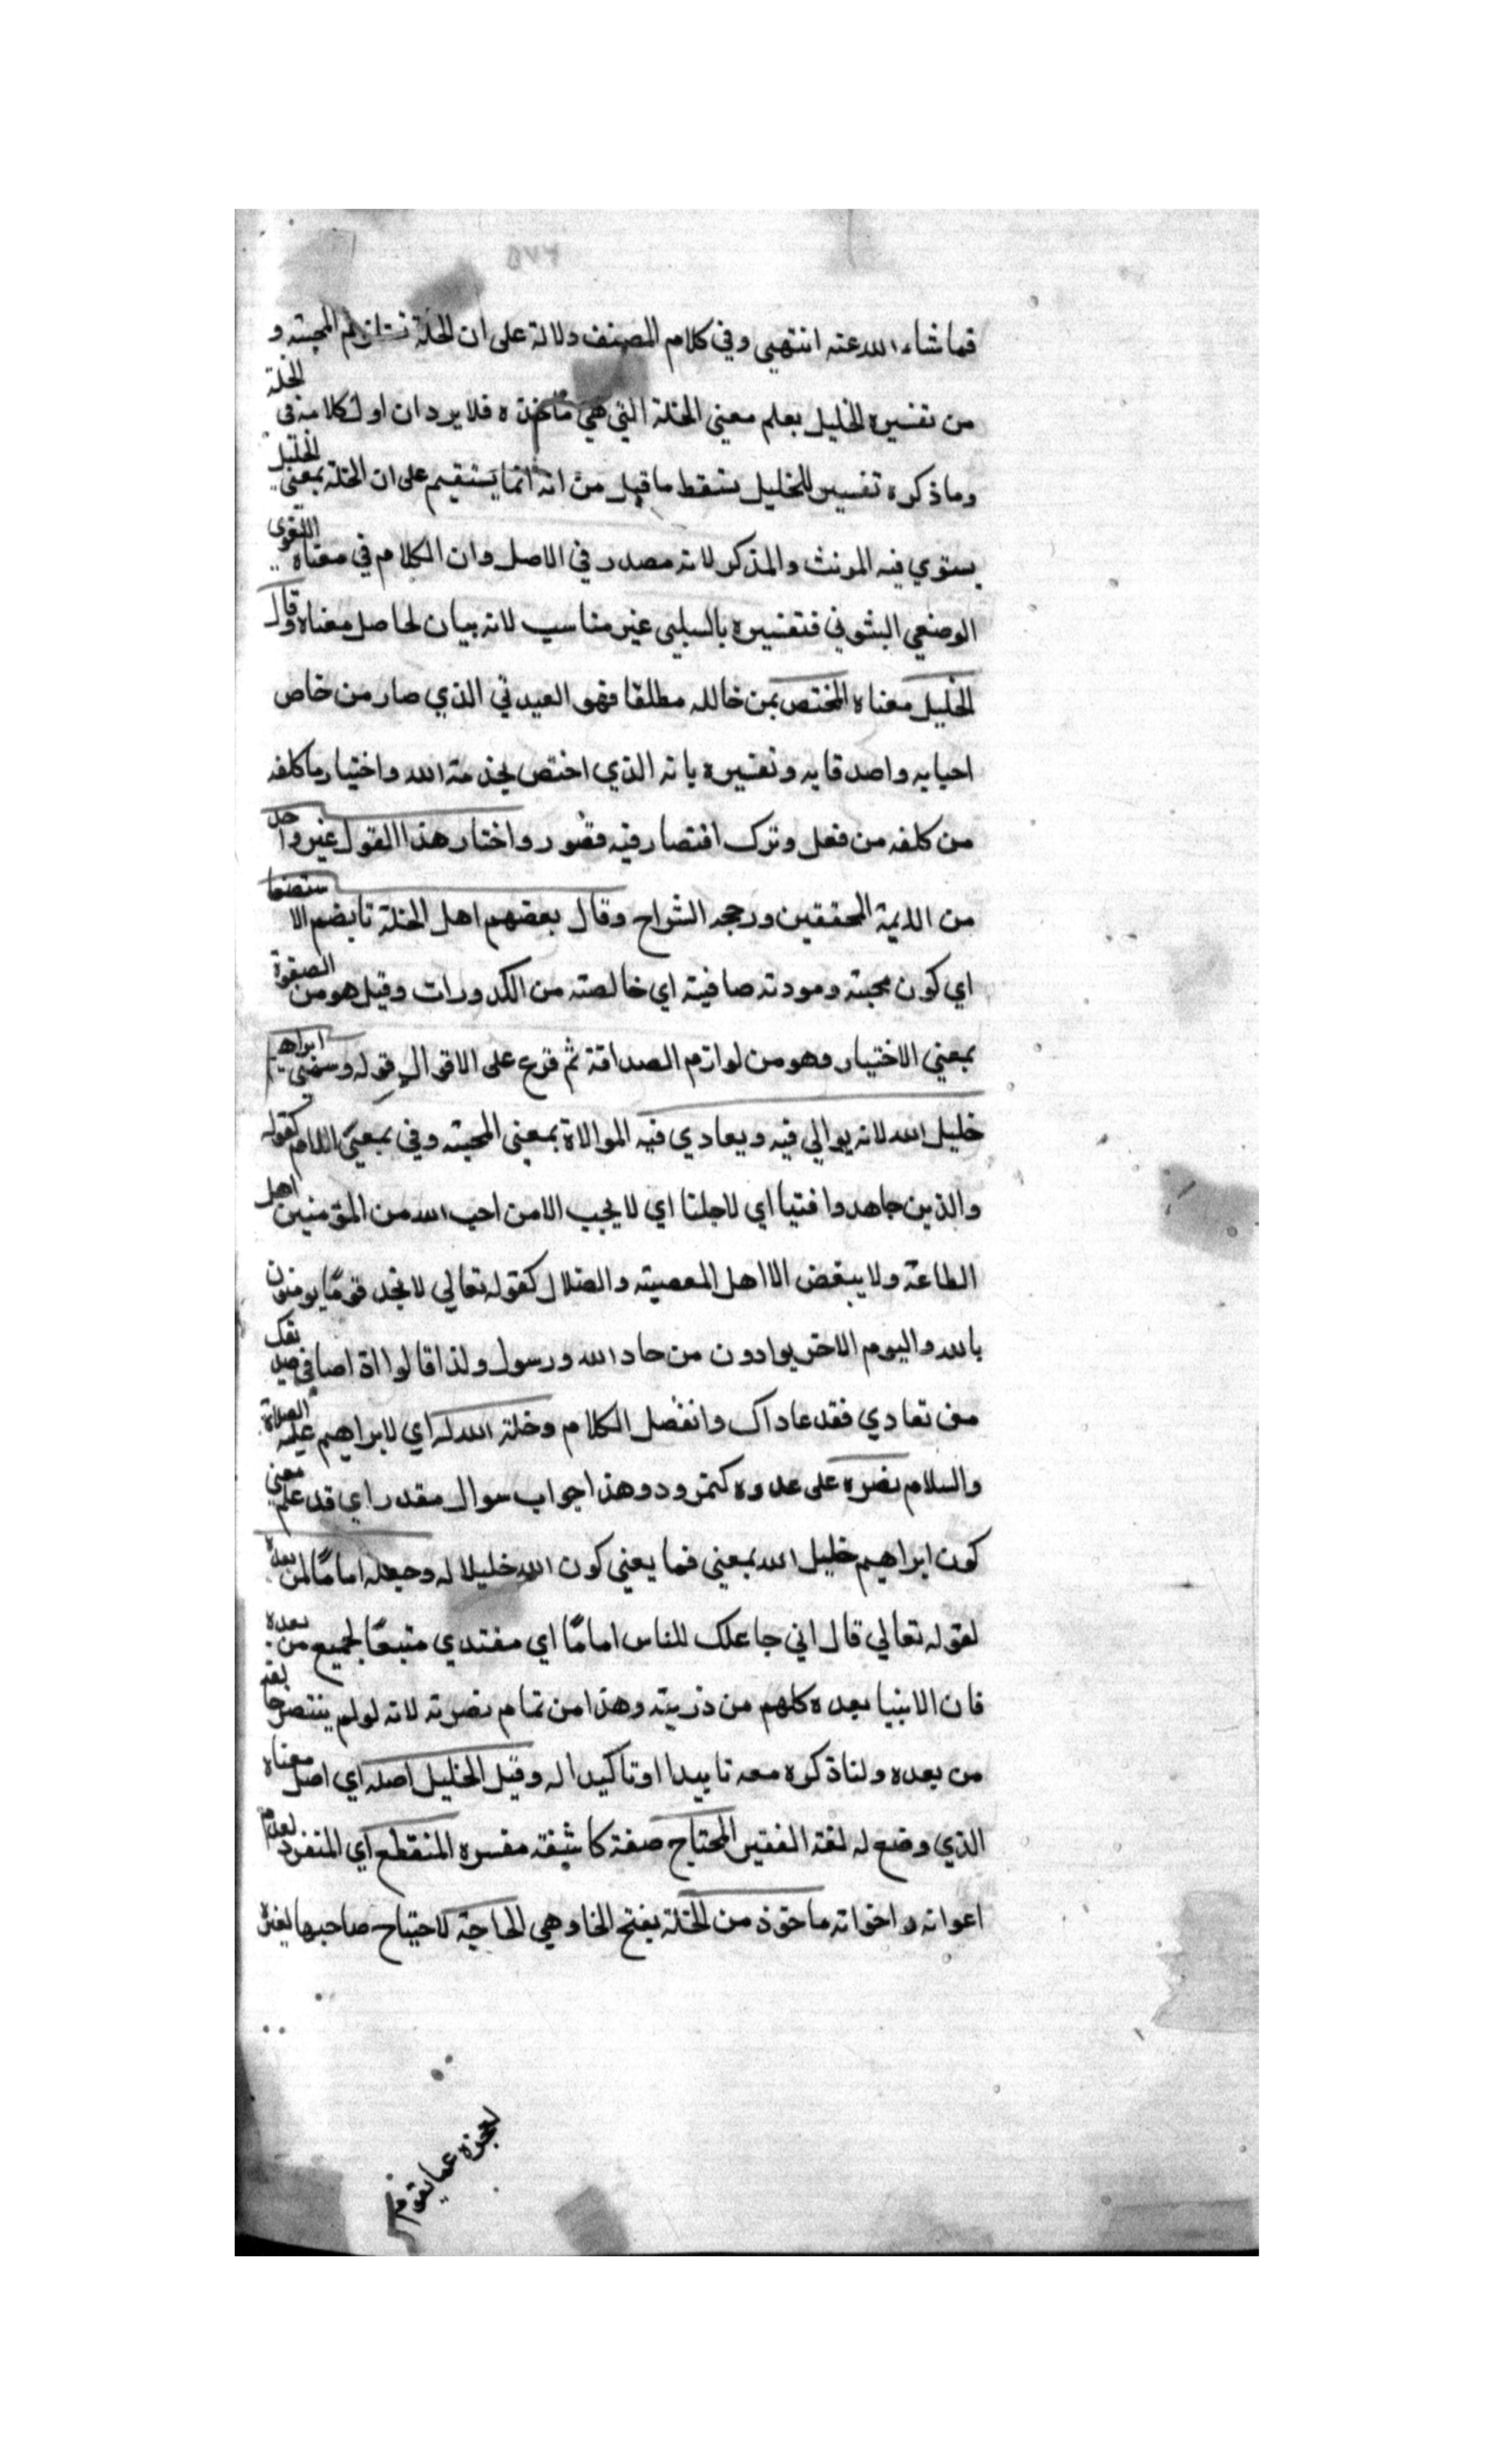 ٢٧٥
فما شاء الله عنه انتهى وفي كلام المصنف دلالة على ان الخلة تستلزم المحبة و
من تفسيره الخليل يعلم معنى الخلة التي هي مأخذه فلا يرد ان اول كلامه في الخلة
وما ذكره تفسير للخليل سقط ما قيل من انه انما يستقيم على ان الخلة بمعنى الخليل
يستوي فيه المونث والمذكر لانه مصدر في الاصل وان الكلام في معناه اللغوي
الوضعي الثبوتي فتفسيره بالسلبي غير مناسب لانه بيان لحاصل معناه وقال
الخليل معناه المختص بمن خالله مطلقا فهو الصديق الذي صار من خاص
احبابه واصدقايه وتفسيره بانه الذي اختص بخدمة الله واختيار ما كلفه
من كلفه من فعل وترك اقتصار فيه قصور واختار هذا القول غير واحد
من الايمة المحققين ورجحه الشراح وقال بعضهم اصل الخلة تا بضم الاستصفا
اي كون محبته ومودته صافية اي خالصة من الكدورات وقيل هو من الصفوة
بمعنى الاختيار وهو من لوازم الصداقة ثم فرع على الاقوال قوله وسمي ابراهيم
خليل الله لانه يوالي فيه ويعادي فيه الموالاة بمعنى المحبة وفي بمعنى اللام كقوله
والذين جاهدوا فينا اي لاجلنا اي لا يحب الا من احب الله من المؤمنين اهل
الطاعة ولا يبغض الا اهل المعصية والضلال كقوله تعالى لا تجد قوما يومنون
بالله واليوم الاخر يوادون من حاد الله ورسوله ولذا قالوا اذا صافى صديقك
من تعادي فقد عاداك وانفصل الكلام وخلة الله له اي لابراهيم عليه الصلاة
والسلام نصره على عدوه كنمرود وهذا جواب سوال مقدر اي قد علم معنى
كون ابراهيم خليل الله بمعنى فما يعني كون الله خليلا له وجعله اماما لمن بعده
لقوله تعالى قال اني جاعلك للناس اماما اي مقتدي متبعا لجميع من بعده
فان الانبيا بعده كلهم من ذريته وهذا من تمام نصرته لانه لو لم ينتصر
من بعده ولذا ذكره معه تاييدا او تاكيدا له وقيل الخليل اصله اي اصل معناه
الذي وضع له لغة الفقير المحتاج صفة كاشفة مفسره المنقطع اي المنفرد لعدم
اعوانه واخوانه ماخوذ من الخلة بفتح الخا وهي الحاجة لاحتياج صاحبها لغيره
لعجزه عما يقوم